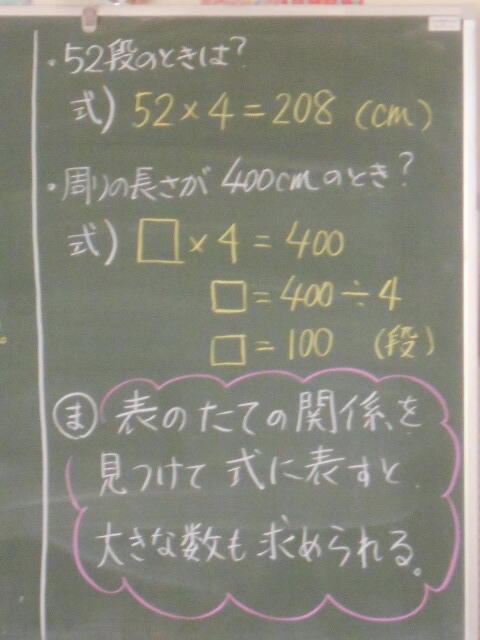 ・52段のときは?
式) 52×4=208 (cm)
・周りの長さが 400cmのとき?
式) □×4=400
□=400÷4
□=100 (段)
ま 表のたての関係を
見つけて 式に表すと
大きな数も求められる。